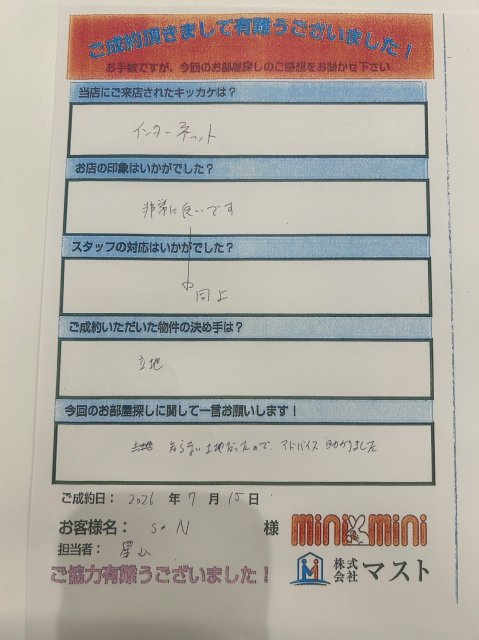 ご成約頂きまして有難うございました！
お手数ですが、今回のお部屋探しのご感想をお聞かせ下さい
当店にご来店されたキッカケは？
インターネット
お店の印象はいかがでした？
非常に良いです
スタッフの対応はいかがでした？
同上
ご成約いただいた物件の決め手は？
立地
今回のお部屋探しに関して一言お願いします！
知らない土地だったので、アドバイス助かりました
ご成約日： 2026 年 7 月 15 日
お客様名： S.N 様
担当者：
ご協力有難うございました！
mini mini
株式会社 マスト